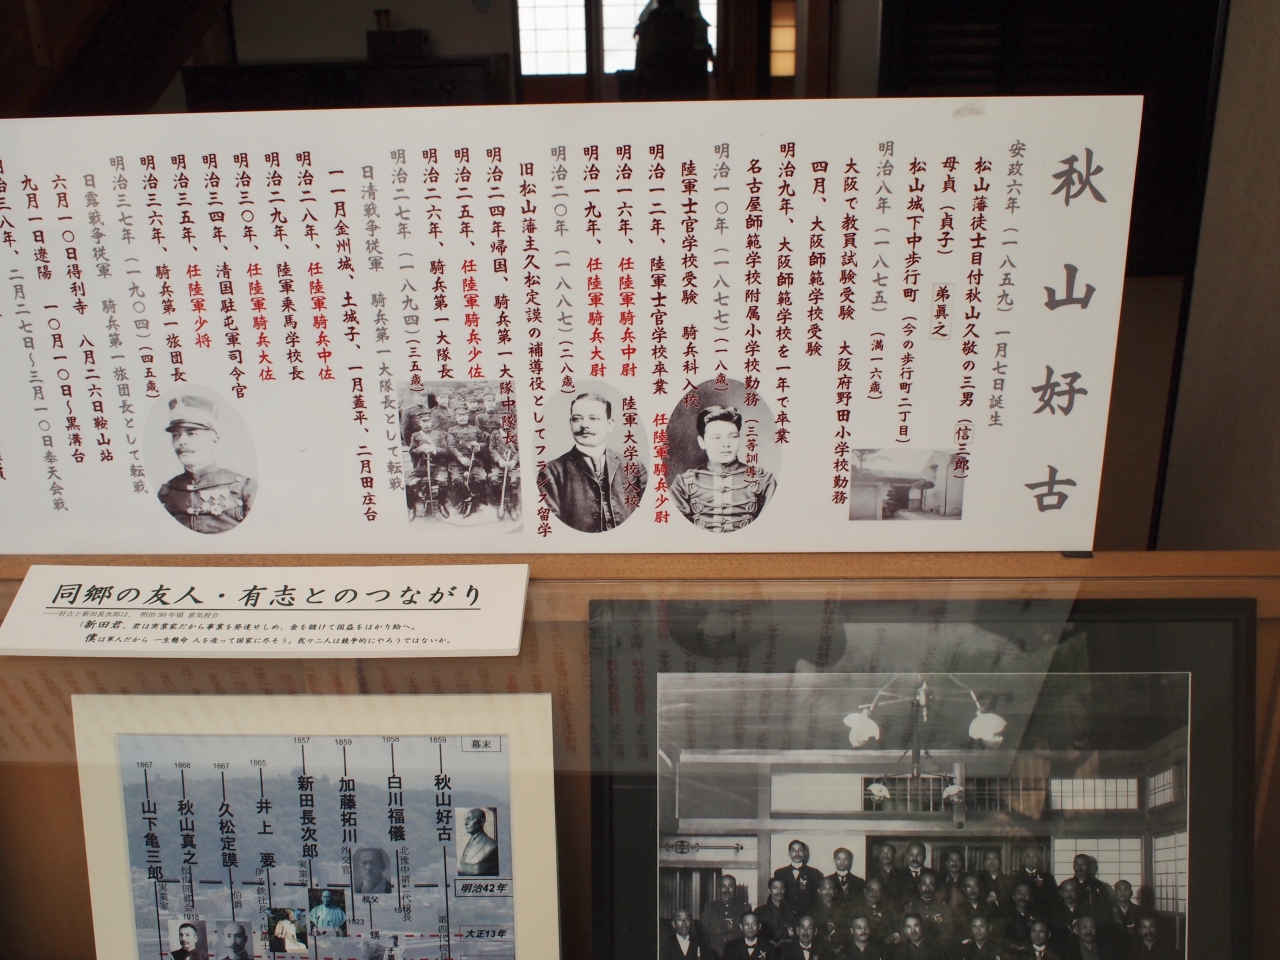 秋山好古
安政六年（一八五九）一月七日誕生
松山藩徒士目付秋山久敬の三男（信三郎）
母貞（貞子） 弟眞之
松山城下中歩行町（今の歩行町二丁目）
明治八年（一八七五）（満一六歳）
大阪で教員試験受験 大阪府野田小学校勤務
四月、大阪師範学校受験
明治九年、大阪師範学校を一年で卒業
名古屋師範学校附属小学校勤務（三等訓導）
明治一〇年（一八七七）（一八歳）
陸軍士官学校受験 騎兵科入校
明治一二年、陸軍士官学校卒業 任陸軍騎兵少尉
明治一六年、任陸軍騎兵中尉 陸軍大学校入校
明治一九年、任陸軍騎兵大尉
明治二〇年（一八八七）（二八歳）
旧松山藩主久松定謨の補導役としてフランス留学
明治二四年帰国、騎兵第一大隊中隊長
明治二五年、任陸軍騎兵少佐
明治二六年、騎兵第一大隊長
明治二七年（一八九四）（三五歳）
日清戦争従軍 騎兵第一大隊長として転戦
一一月金州城、土城子、一月蓋平、二月田庄台
明治二八年、任陸軍騎兵中佐
明治二九年、陸軍乗馬学校長
明治三〇年、任陸軍騎兵大佐
明治三四年、清国駐屯軍司令官
明治三五年、任陸軍少将
明治三六年、騎兵第一旅団長
明治三七年（一九〇四）（四五歳）
日露戦争従軍 騎兵第一旅団長として転戦
六月一〇日得利寺 八月二六日鞍山站
九月一日遼陽 一〇月一〇日～黒溝台
明治三八年、二月二七日～三月一〇日奉天会戦
同郷の友人・有志とのつながり
──好古と新田長次郎は、明治30年頃 意気投合
「新田君、君は実業家だから事業を発達せしめ、金を儲けて国益をはかり給へ。
僕は軍人だから 一生懸命 人を造って国家に尽そう。我々二人は競争的にやろうではないか。
幕末
1859
秋山好古
明治42年
大正13年
1858
白川福儀
1859
加藤拓川
外交官
叔父
甥
1923
1857
新田長次郎
実業家
1865
井上 要
1867
久松定謨
伯爵
1868
秋山真之
1918
1867
山下亀三郎
実業家